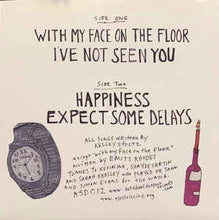 SIDE ONE
WITH MY FACE ON THE FLOOR
I'VE NOT SEEN YOU
SIDE TWO
HAPPINESS
EXPECT SOME DELAYS
ALL SONGS WRITTEN BY
KELLEY STOLTZ,
except "with my Face on the Floor"
written by EMITT RHODES
THANKS TO KEVIN INK, SHAYDE SARTIN
AND SARAH
AND SIMON EVANS for THE WATCH.
ASDC12
www.electriccity.org